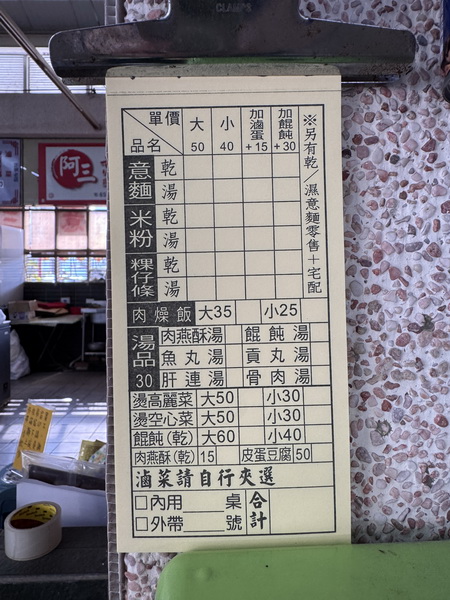 CLAMPS
單價 大 小 加滷蛋 加餛飩
品名 50 40 +15 +30
意麵 乾
湯
米粉 乾
湯
粿仔條 乾
湯
※另有乾/濕意麵零售+宅配
肉燥飯 大35 小25
湯品30 肉燕酥湯 餛飩湯
魚丸湯 貢丸湯
肝連湯 骨肉湯
燙高麗菜 大50 小30
燙空心菜 大50 小30
餛飩(乾) 大60 小40
肉燕酥(乾) 15 皮蛋豆腐 50
滷菜請自行夾選
□內用____桌 合計
□外帶____號
阿三